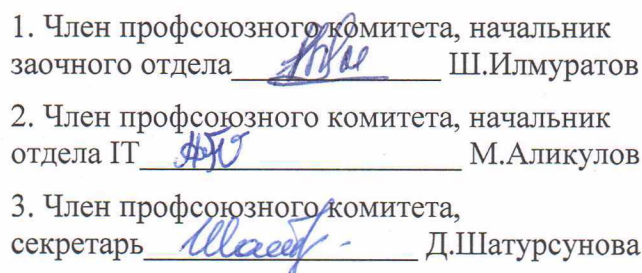 1. Член профсоюзного комитета, начальник
заочного отдела_______________ Ш.Илмуратов
2. Член профсоюзного комитета, начальник
отдела IT_______________________ М.Аликулов
3. Член профсоюзного комитета,
секретарь____________________ Д.Шатурсунова